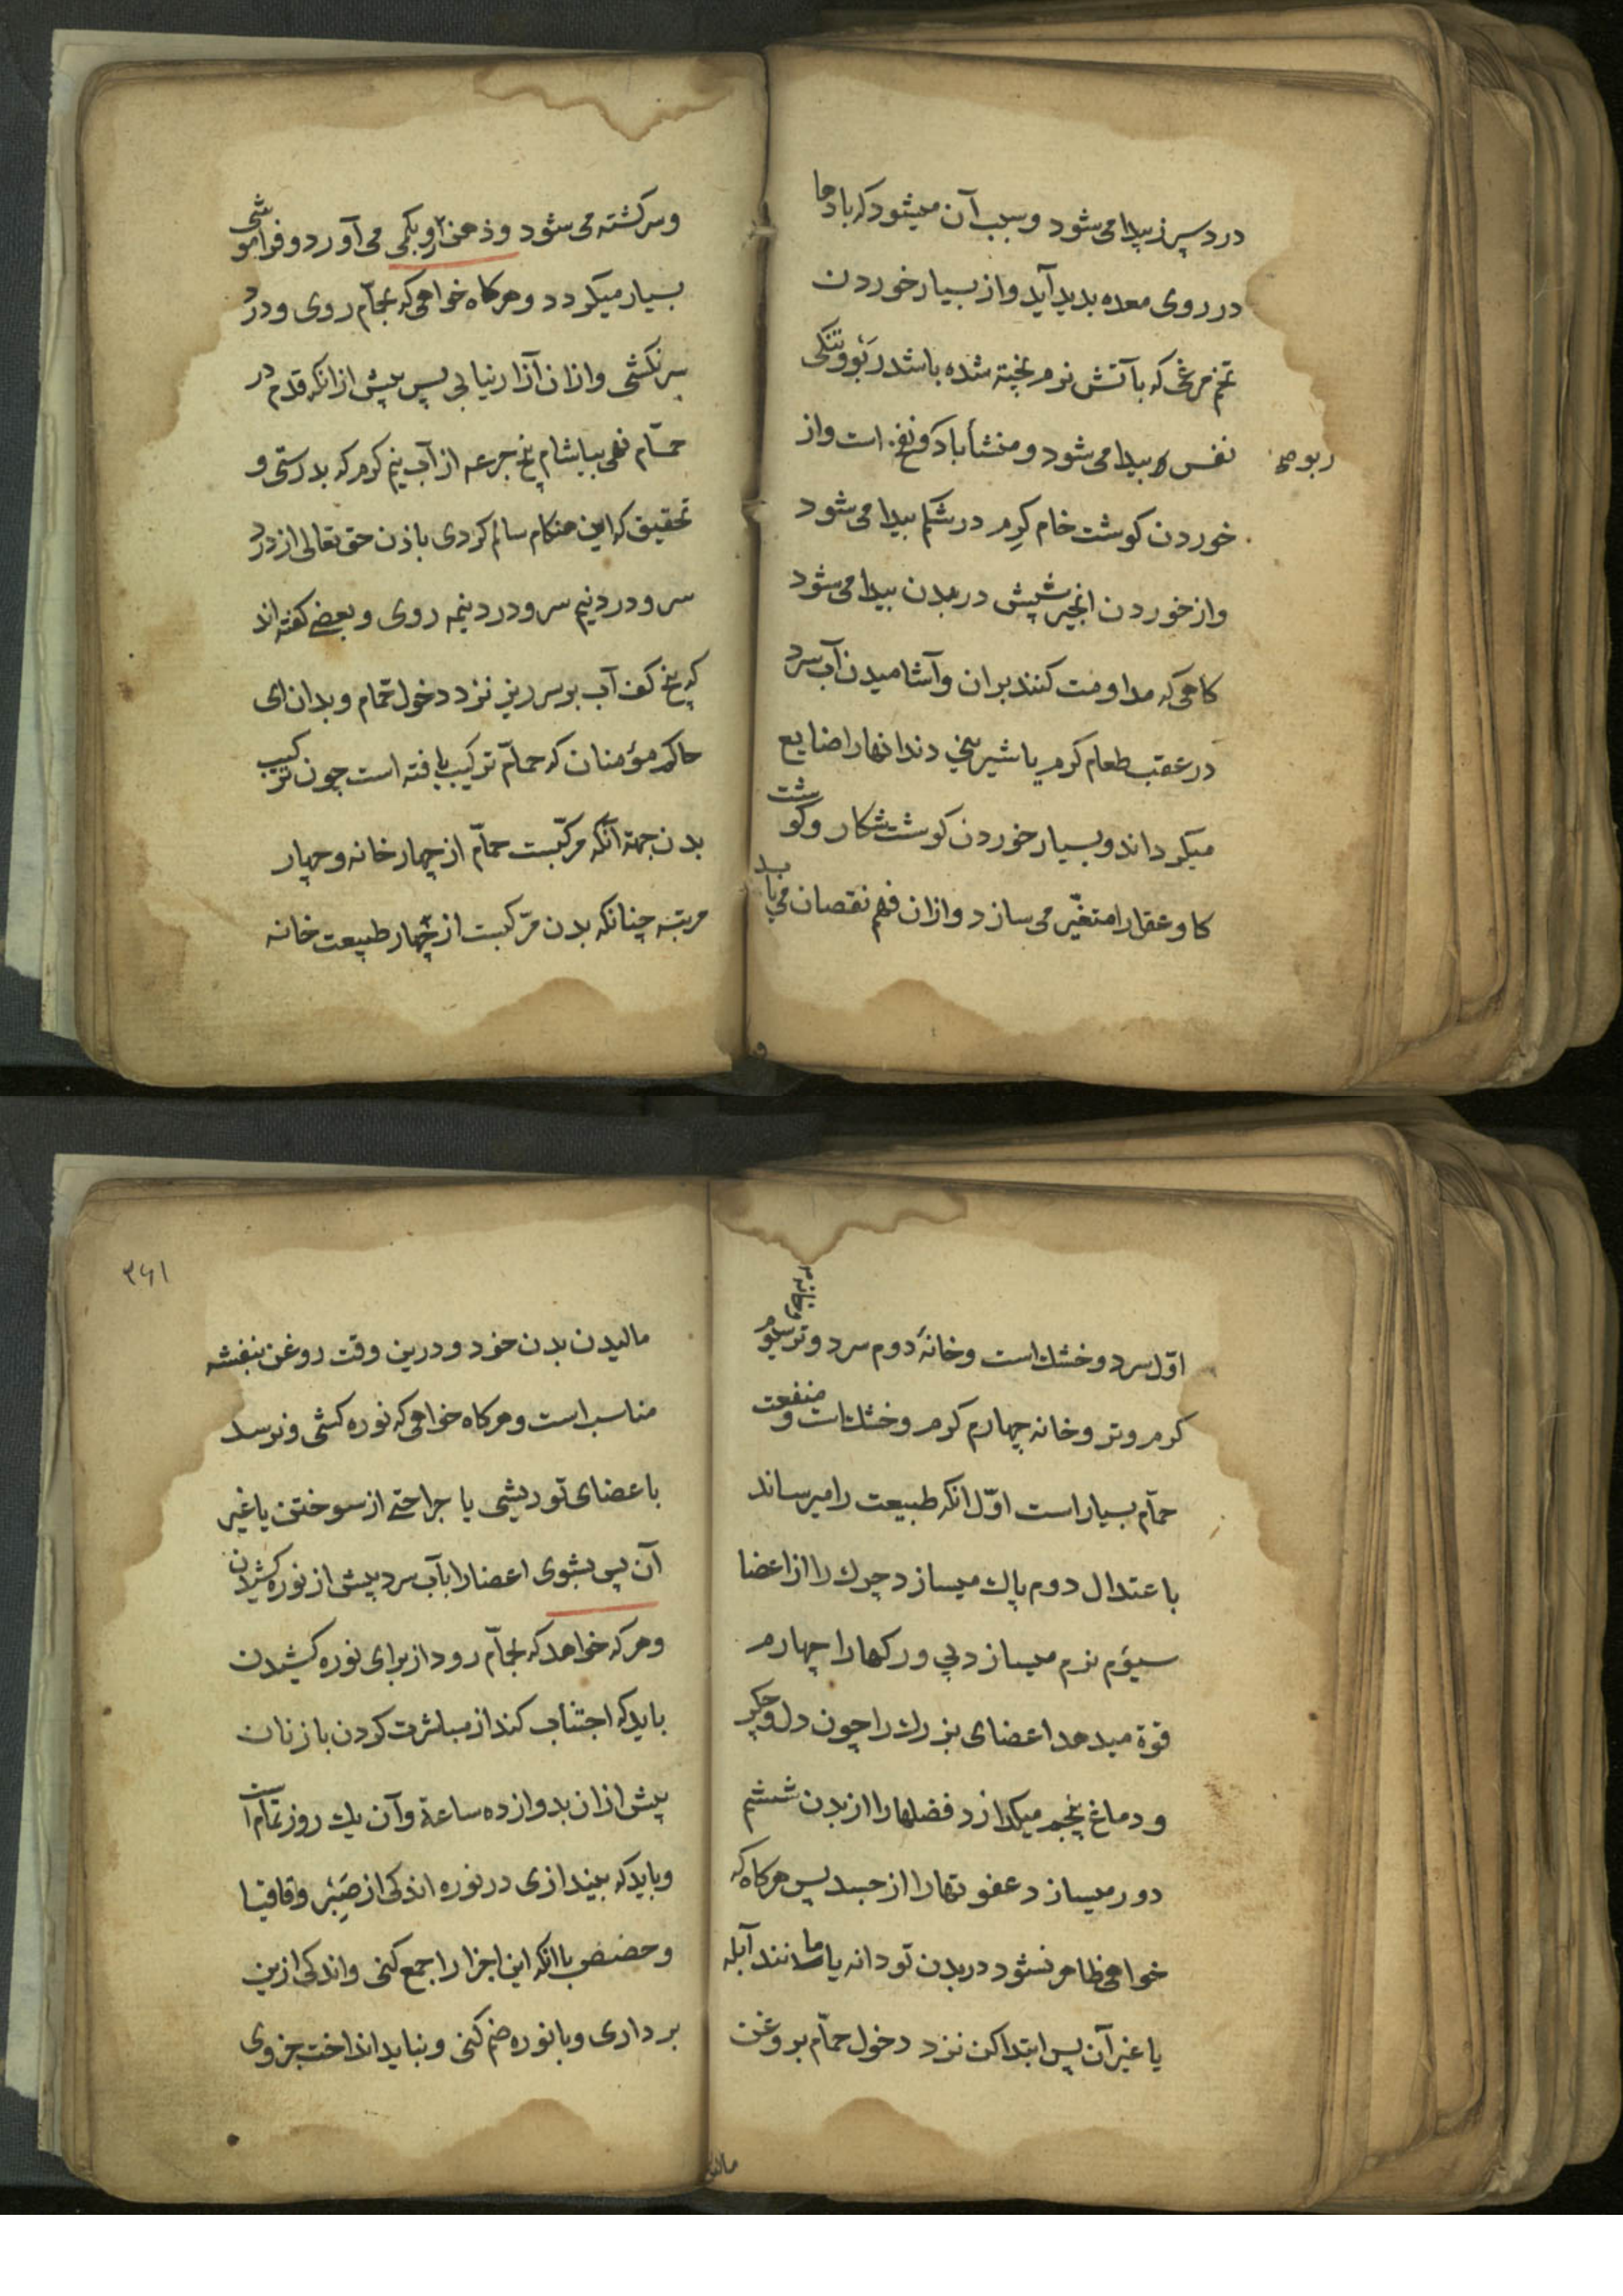 درد سپرز پیدا می شود و سبب آن میشود که بادها
در روی معده بدید آید و از بسیار خوردن
تخم مرغی که بآتش نرم پخته شده باشد ربو و تنکی
نفس پیدا می شود و منشأ باد و نفخ است و از
ربو
خوردن کوشت خام کرم در شکم پیدا می شود
و از خوردن انجیر شپش در بدن پیدا می شود
کاهی که مداومت کنند بران و آشامیدن آب سرد
در عقب طعام کرم یا شیرینی دندانها را ضایع
میکرداند و بسیار خوردن کوشت شکار و کوشت
کاو عقل را متغیّر می سازد و ازان فهم نقصان می یابد
و سرکشته می شود و ذهن می آورد و فراموشی
بسیار میکردد و هرکاه خواهی که بحمّام روی و درد
سر نکشی و ازان آزار نیابی پس پیش ازانکه قدم در
حمّام نهی بیاشام پنج جرعه از آب نیم کرم که بدرستی و
تحقیق که این هنکام سالم کردی باذن حق تعالی از درد
سر و درد نیم سر و درد نیمه روی و بعضی کفته اند
که پنج کف آب بر سر ریز نزد دخول حمّام و بدان ای
حاکم مؤمنان که حمّام ترکیب یافته است چون ترکیب
بدن جهة آنکه مرکّبست حمّام از چهار خانه و چهار
مرتبه چنانکه بدن مرّکبست از چهار طبیعت خانه
اوّل سرد و خشك است و خانهٔ دوم سرد و تر و خانه سیوم
کرم و تر و خانه چهارم کرم و خشك است و منفعت
حمّام بسیار است اوّل انکه طبیعت را میرساند
باعتدال دوم پاك میسازد چرك را از اعضا
سیؤم نرم میسازد پی و رکها را چهارم
قوة میدهد اعضای بزرك را چون دل و جکر
و دماغ پنجم میکدازد فضلها را از بدن ششم
دور میسازد عفونتها را از جسد پس هرکاه که
خواهی ظاهر نشود در بدن تو دانه یا مانند آبله
یا غیر آن پس ابتدا کن نزد دخول حمّام بروغن
مالیدن
۳۶۱
مالیدن بدن خود و درین وقت روغن بنفشه
مناسب است و هرکاه خواهی که نوره کشی و نرسد
باعضای تو ریشی یا جراحتی از سوختن یا غیر
آن پس بشوی اعضا را بآب سرد پیش از نوره کشیدن
و هر که خواهد که بحمّام رود از برای نوره کشیدن
باید که اجتناب کند از مباشرت کردن با زنان
پیش ازان بدوازده ساعة و آن یك روز تمام است
و باید که بیندازی در نوره اندکی از صَبِر و اقاقیا
و حضض یا انکه این اجزا را جمع کنی و اندکی ازین
برداری و با نوره ضم کنی و نباید انداخت جزوی